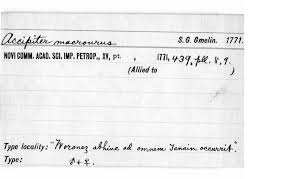 Accipiter macrourus S. G. Gmelin. 1771.
NOVI COMM. ACAD. SCI. IMP. PETROP., XV, pt. , 1771, 439, pll. 8, 9.
(Allied to )
Type locality: "Woronez abhinc ad omnem Tanain occurrit".
Type: ♂ + ♀.